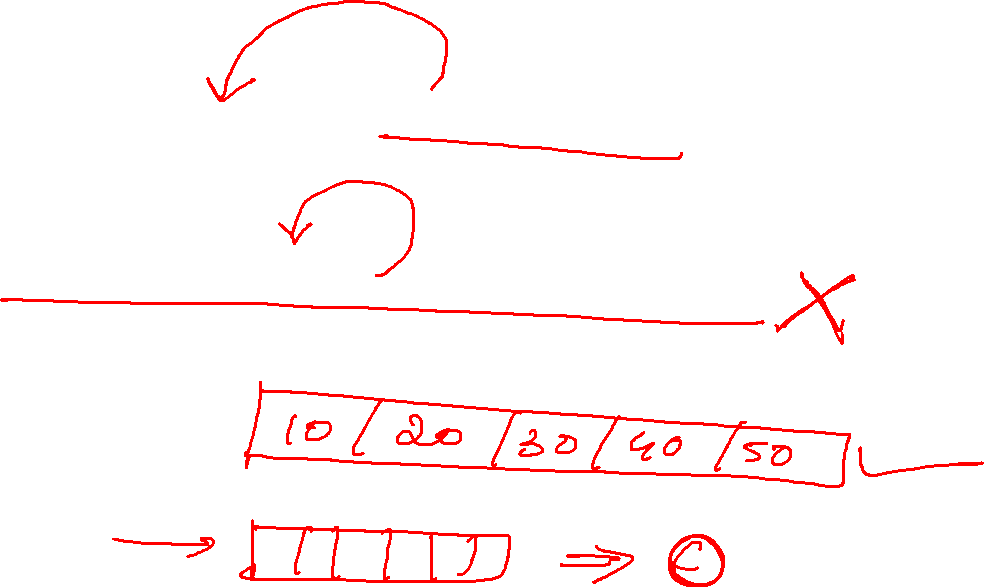 10 20 30 40 50
C